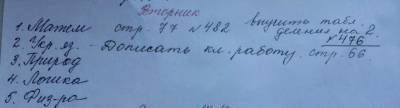 Вторник
1. Матем стр. 77 № 482 выучить табл. деления на 2.
2. Укр. яз. - Дописать кл. работу. стр. 66. № 476
3. Природ
4. Логика
5. Физ-ра